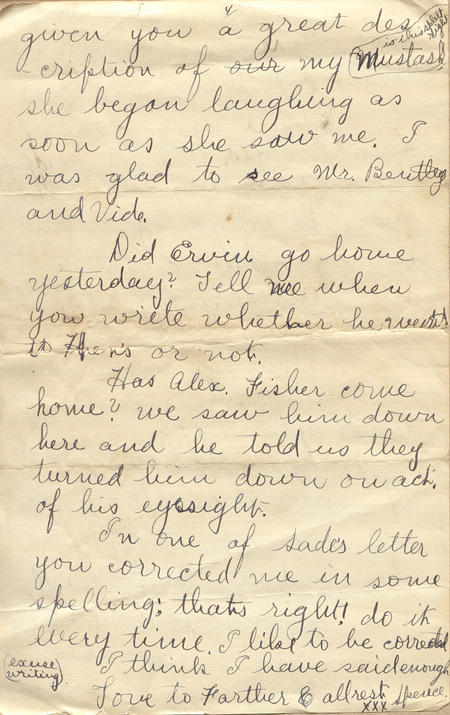 4
given you a great des
-cription of our my Mustash
is this spelt right
she began laughing as
soon as she saw me. I
was glad to see Mr. Bentley
and Vide.
Did Ervin go home
yesterday? Tell me when
you write whether he went
to or not.
Has Alex. Fisher come
home? we saw him down
here and he told us they
turned him down on act.
of his eyesight.
In one of Sade's letter
you corrected me in some
spelling; thats right! do it
every time. I like to be corrected
I think I have said enough
(excuse writing).
Love to Farther & all rest Spence.
xxx